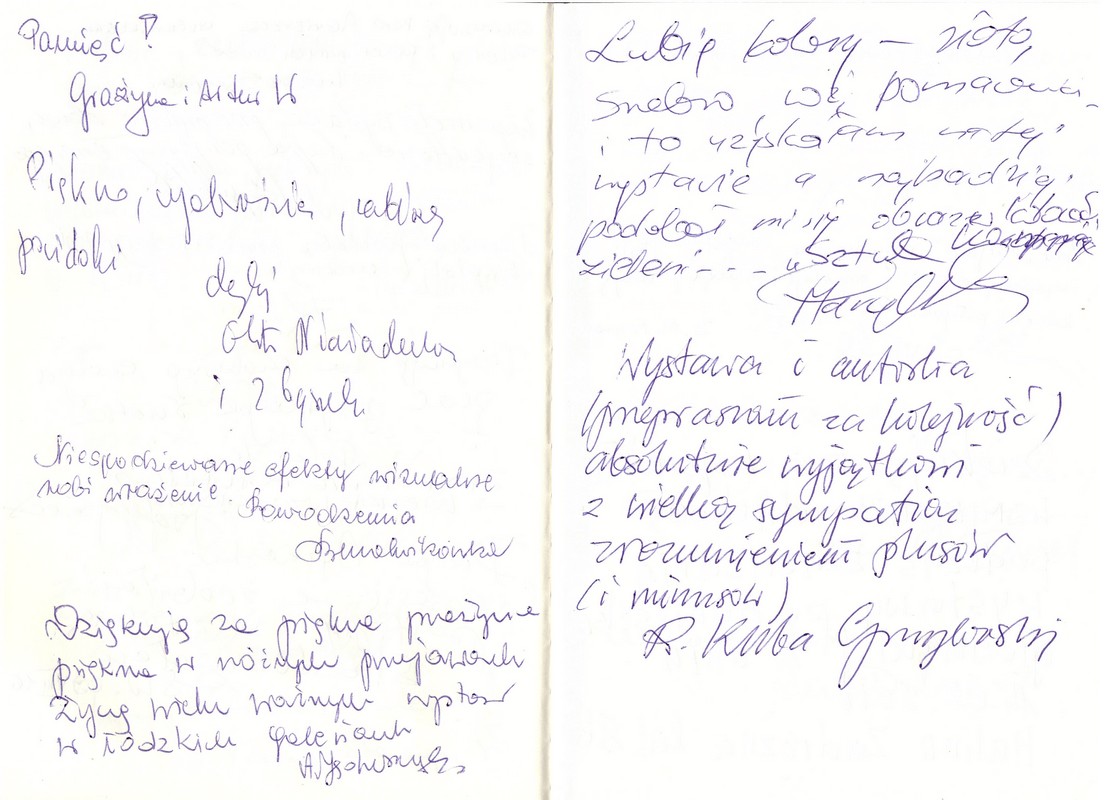 Pamięć!
Grażyna i Artur W
Piękno, wyobraźnia,
dzięki
i Zbyszek
Niespodziewane efekty wizualne
robi wrażenie. Powodzenia
Dziękuję za piękne przeżycie
piękna w różnych przejawach
Życzę wielu ważnych wystaw
w łódzkich galeriach
Lubię kolory – złoto,
srebro, i pomarańcz
i to uzyskałam na tej
wystawie a najbardziej
podobał mi się obraz
zieleni - - -
Wystawa i autorka
(przepraszam za kolejność)
absolutnie wyjątkowi
z wielką sympatią
zrozumieniem plusów
(i minusów)
R. Kuba Grzybowski